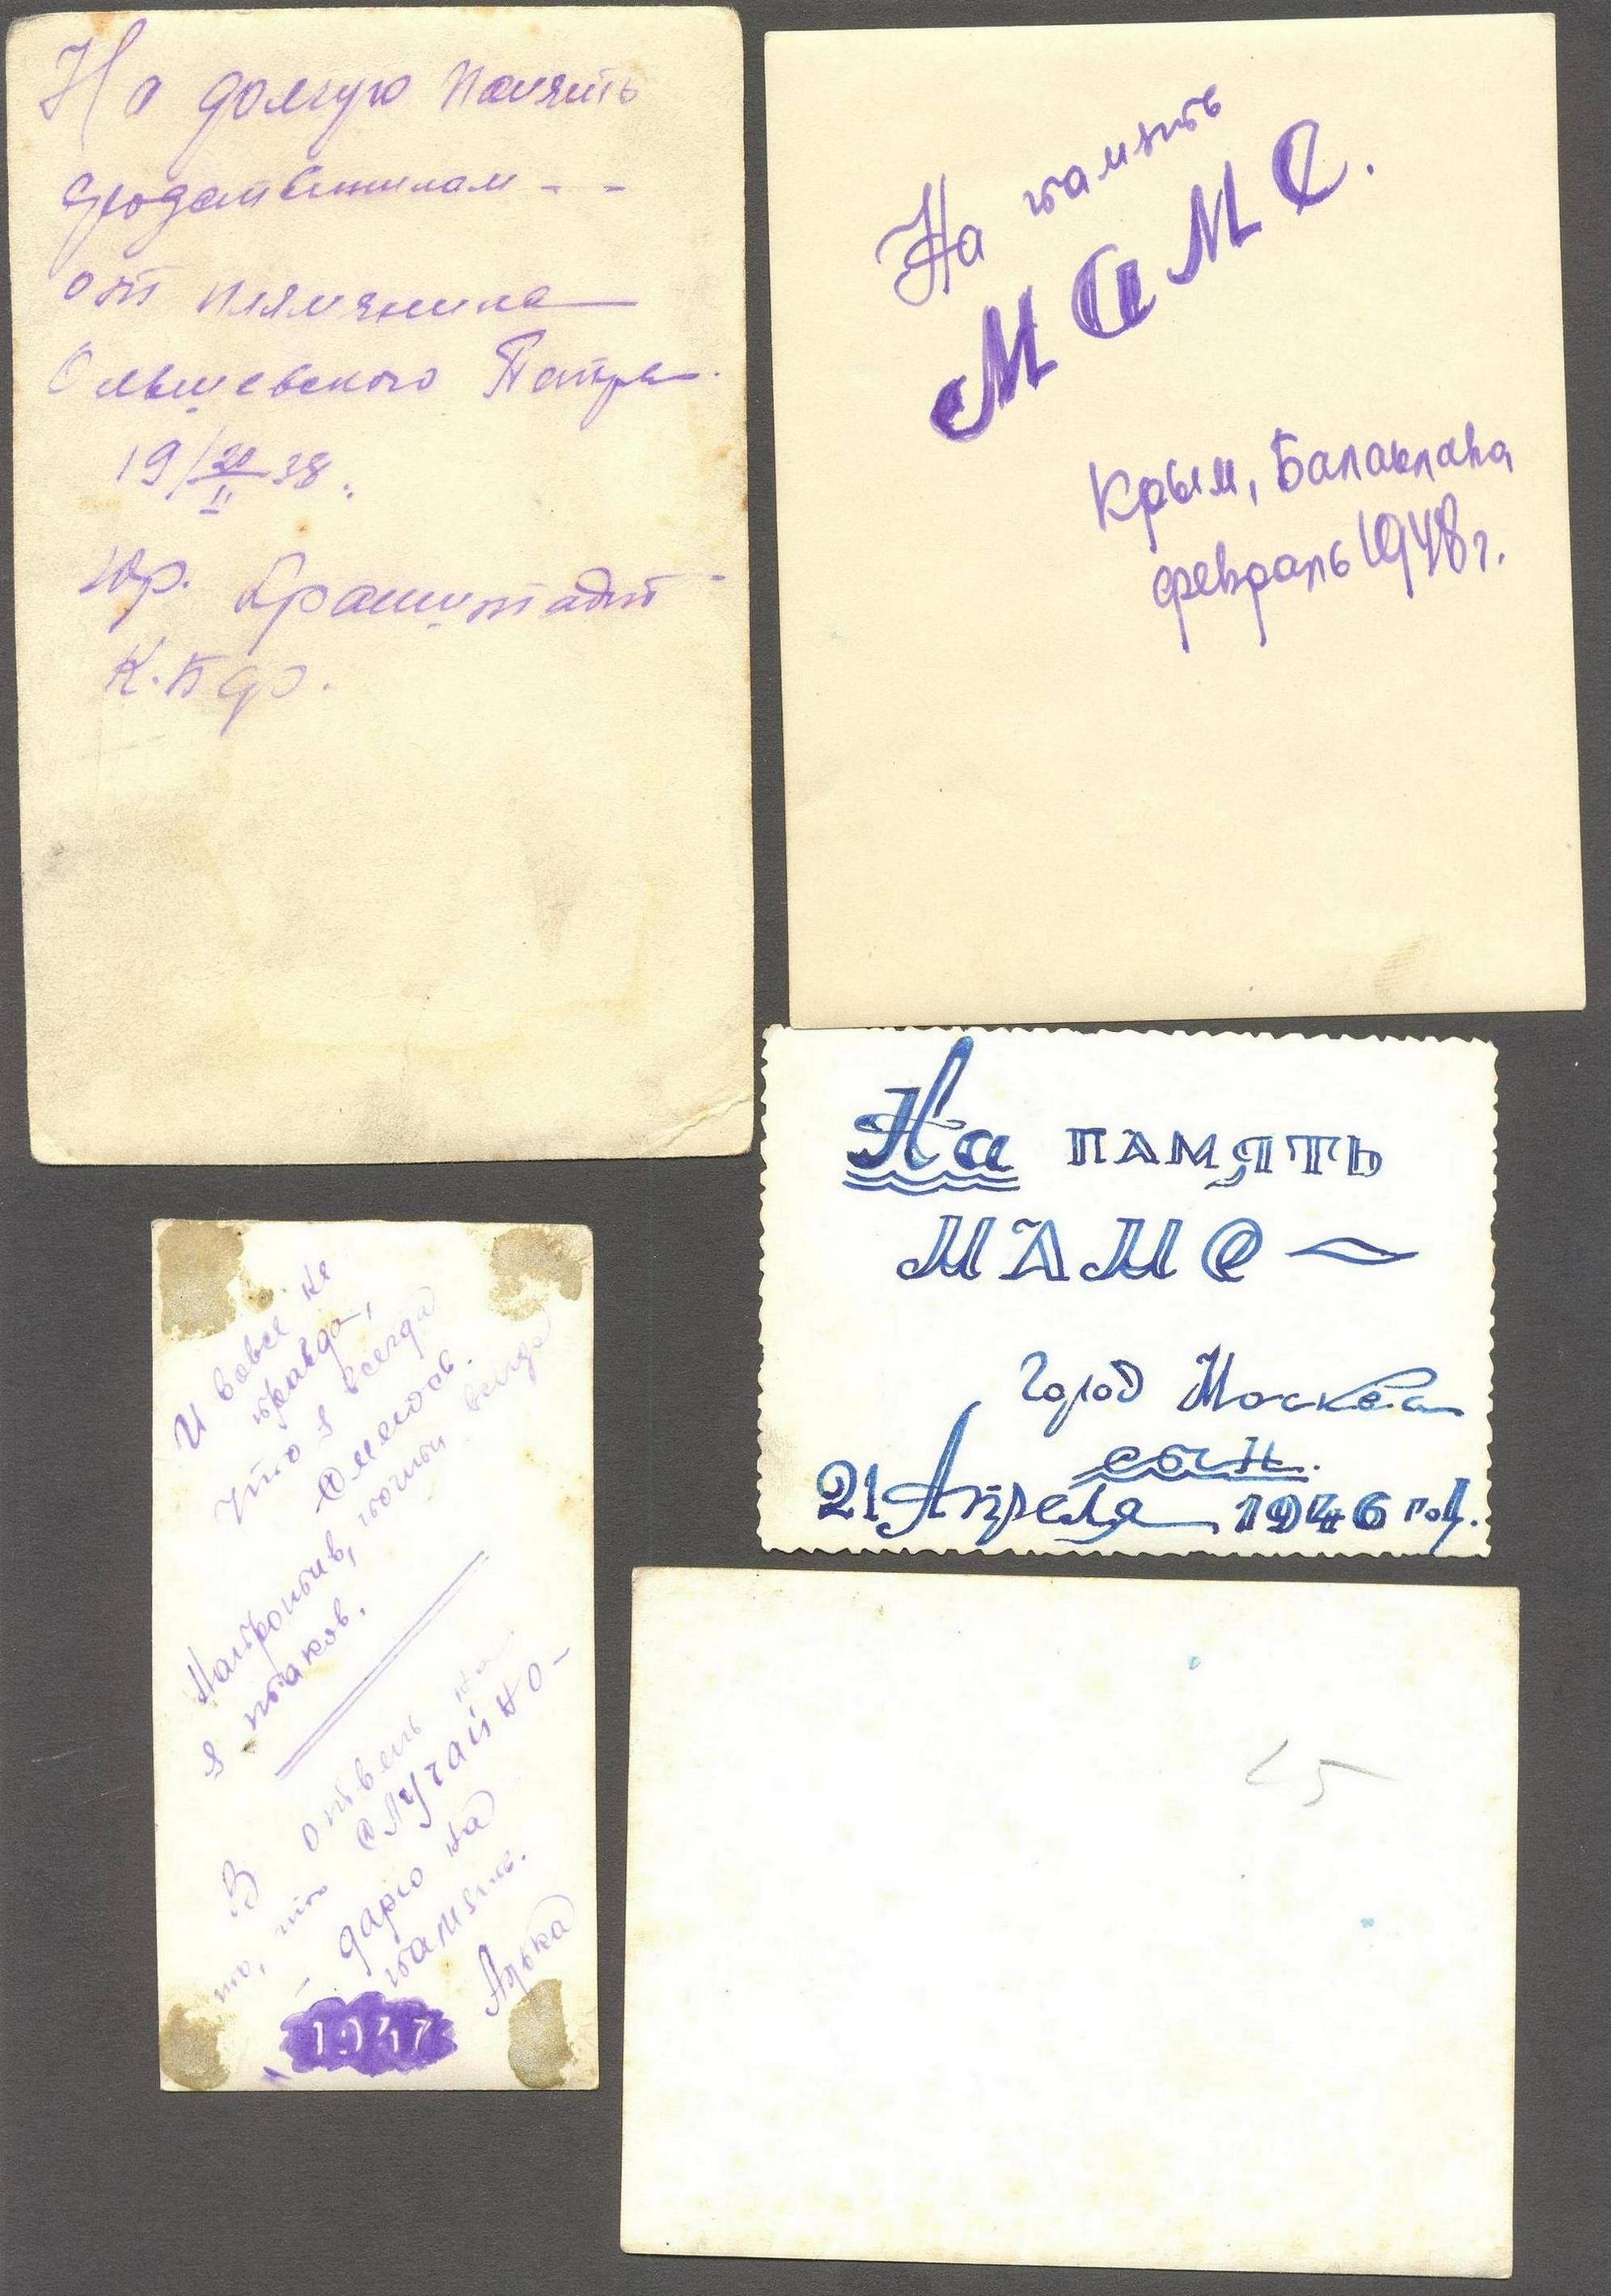 На долгую память
родственикам - -
от племяника
Ольшевского Петра.
19/20/II 38.
гор. Кранштадт
К.Б.Ф.
На память
МАМЕ.
Крым, Балаклава
февраль 1948 г.
На память
МАМЕ
город Москва
сын.
21 Апреля 1946 год.
И вовсе не
правда,
Что я всегда
смеюсь.
Напротив, почти всегда
я таков.
В ответ на
то, что случайно -
- дарю на
память.
Алька
1947